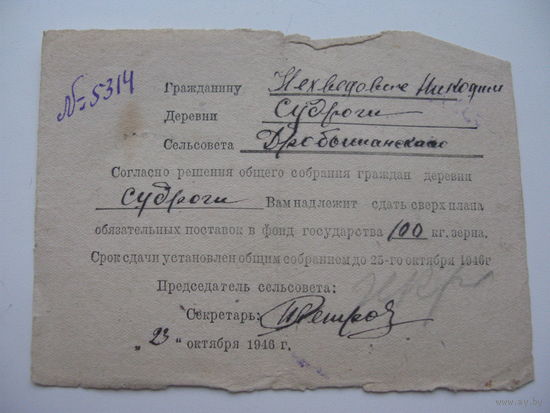 № 5314
Гражданину Нехведович Никодим
Деревни Судроги
Сельсовета Дробышанского
Согласно решения общего собрания граждан деревни
Судроги Вам надлежит сдать сверх плана
обязательных поставок в фонд государства 100 кг. зерна.
Срок сдачи установлен общим собранием до 25-го октября 1946г
Председатель сельсовета:
Секретарь: Петров
„23" октября 1946 г.
www.ay.by